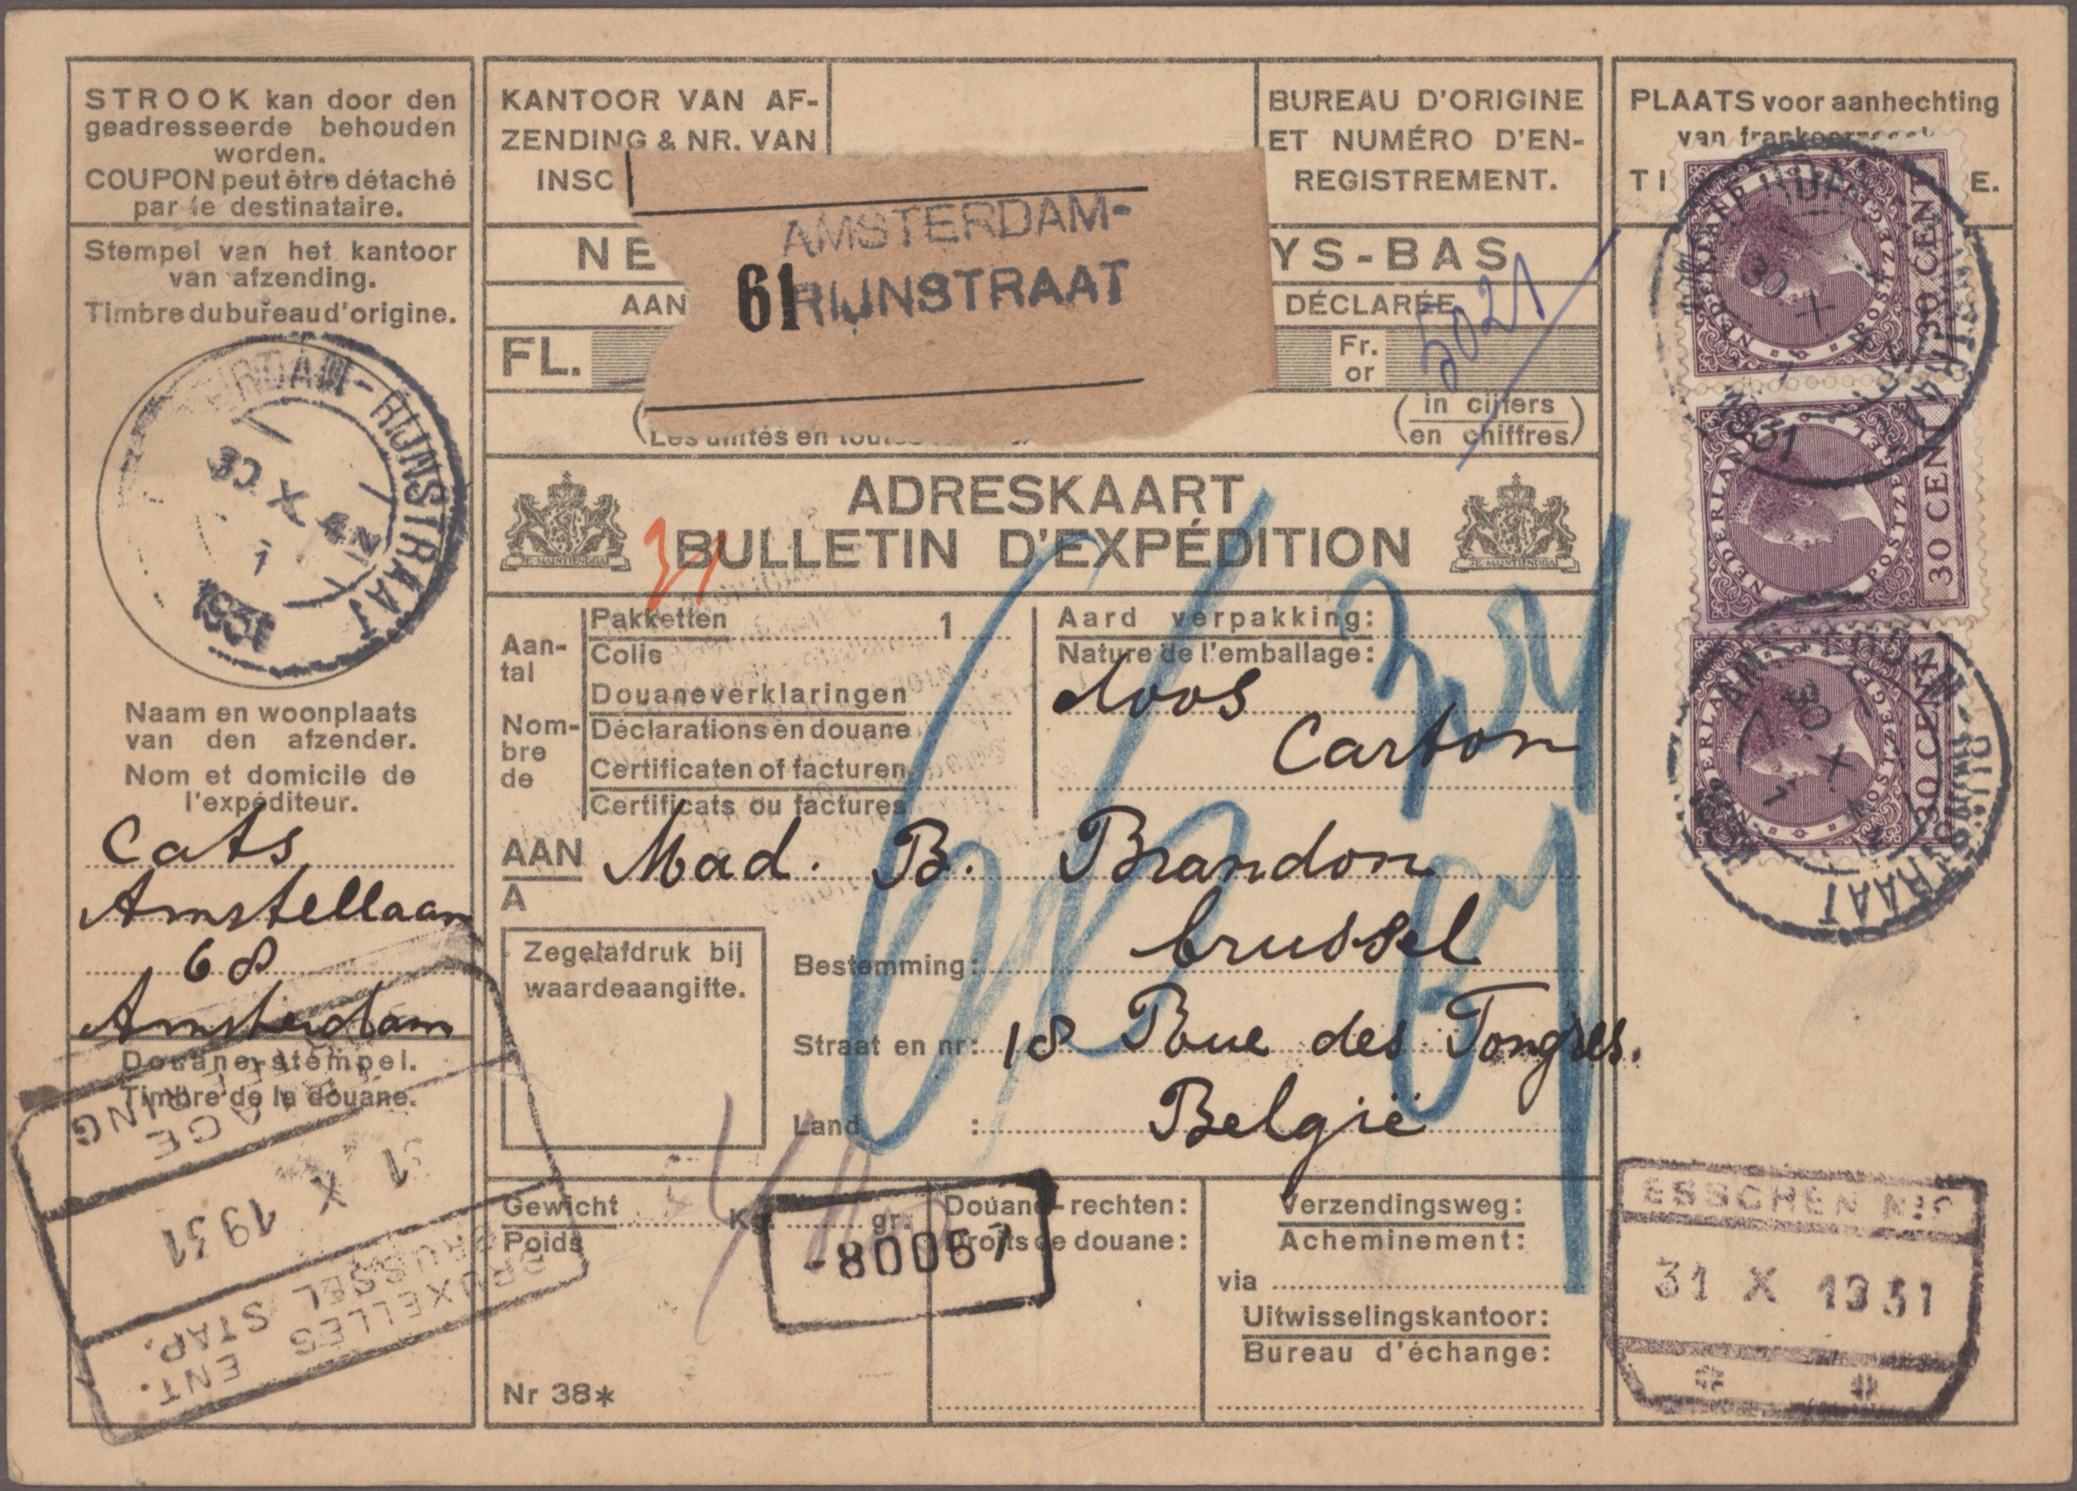 STROOK kan door den
geadresseerde behouden
worden.
COUPON peut être détaché
par le destinataire.
Stempel van het kantoor
van afzending.
Timbre du bureau d'origine.
ERDAM-RIJNSTRAAT
30 X
1931
Naam en woonplaats
van den afzender.
Nom et domicile de
l'expéditeur.
Cats
Amstellaan
68
Amsterdam
Douane-stempel.
Timbre de la douane.
31 X 1931
BRUXELLES ENT.
BRUSSEL STAP.
KANTOOR VAN AF-
ZENDING & NR. VAN
INSC
BUREAU D'ORIGINE
ET NUMÉRO D'EN-
REGISTREMENT.
AMSTERDAM-
61 RIJNSTRAAT
NE YS-BAS
AAN DÉCLARÉE
5021
FL. Fr.
or
(in cijfers
Les unités en toutes en chiffres)
ADRESKAART
BULLETIN D'EXPÉDITION
JE MAINTIENDRAI
JE MAINTIENDRAI
31
Aan-
tal
Nom-
bre
de
Pakketten 1
Colis
Douaneverklaringen
Déclarations en douane
Certificaten of facturen
Certificats ou factures
Aard verpakking:
Nature de l'emballage:
doos
Carton
AAN
A
Mad. B. Brandon
Zegelafdruk bij
waardeaangifte.
Bestemming: brussel
Straat en nr: 18 Rue des Tongres.
Land : België
Gewicht Kg. gr.
Poids
-80067
Nr 38*
Douane-rechten:
Droits de douane:
Verzendingsweg:
Acheminement:
via
Uitwisselingskantoor:
Bureau d'échange:
PLAATS voor aanhechting
van frankeerzegel
TI E.
NEDERLAND POSTZEGEL 30 CENT
NEDERLAND POSTZEGEL 30 CENT
NEDERLAND POSTZEGEL 30 CENT
30 X
1931
30 X
STRAAT
ESSCHEN
31 X 1931